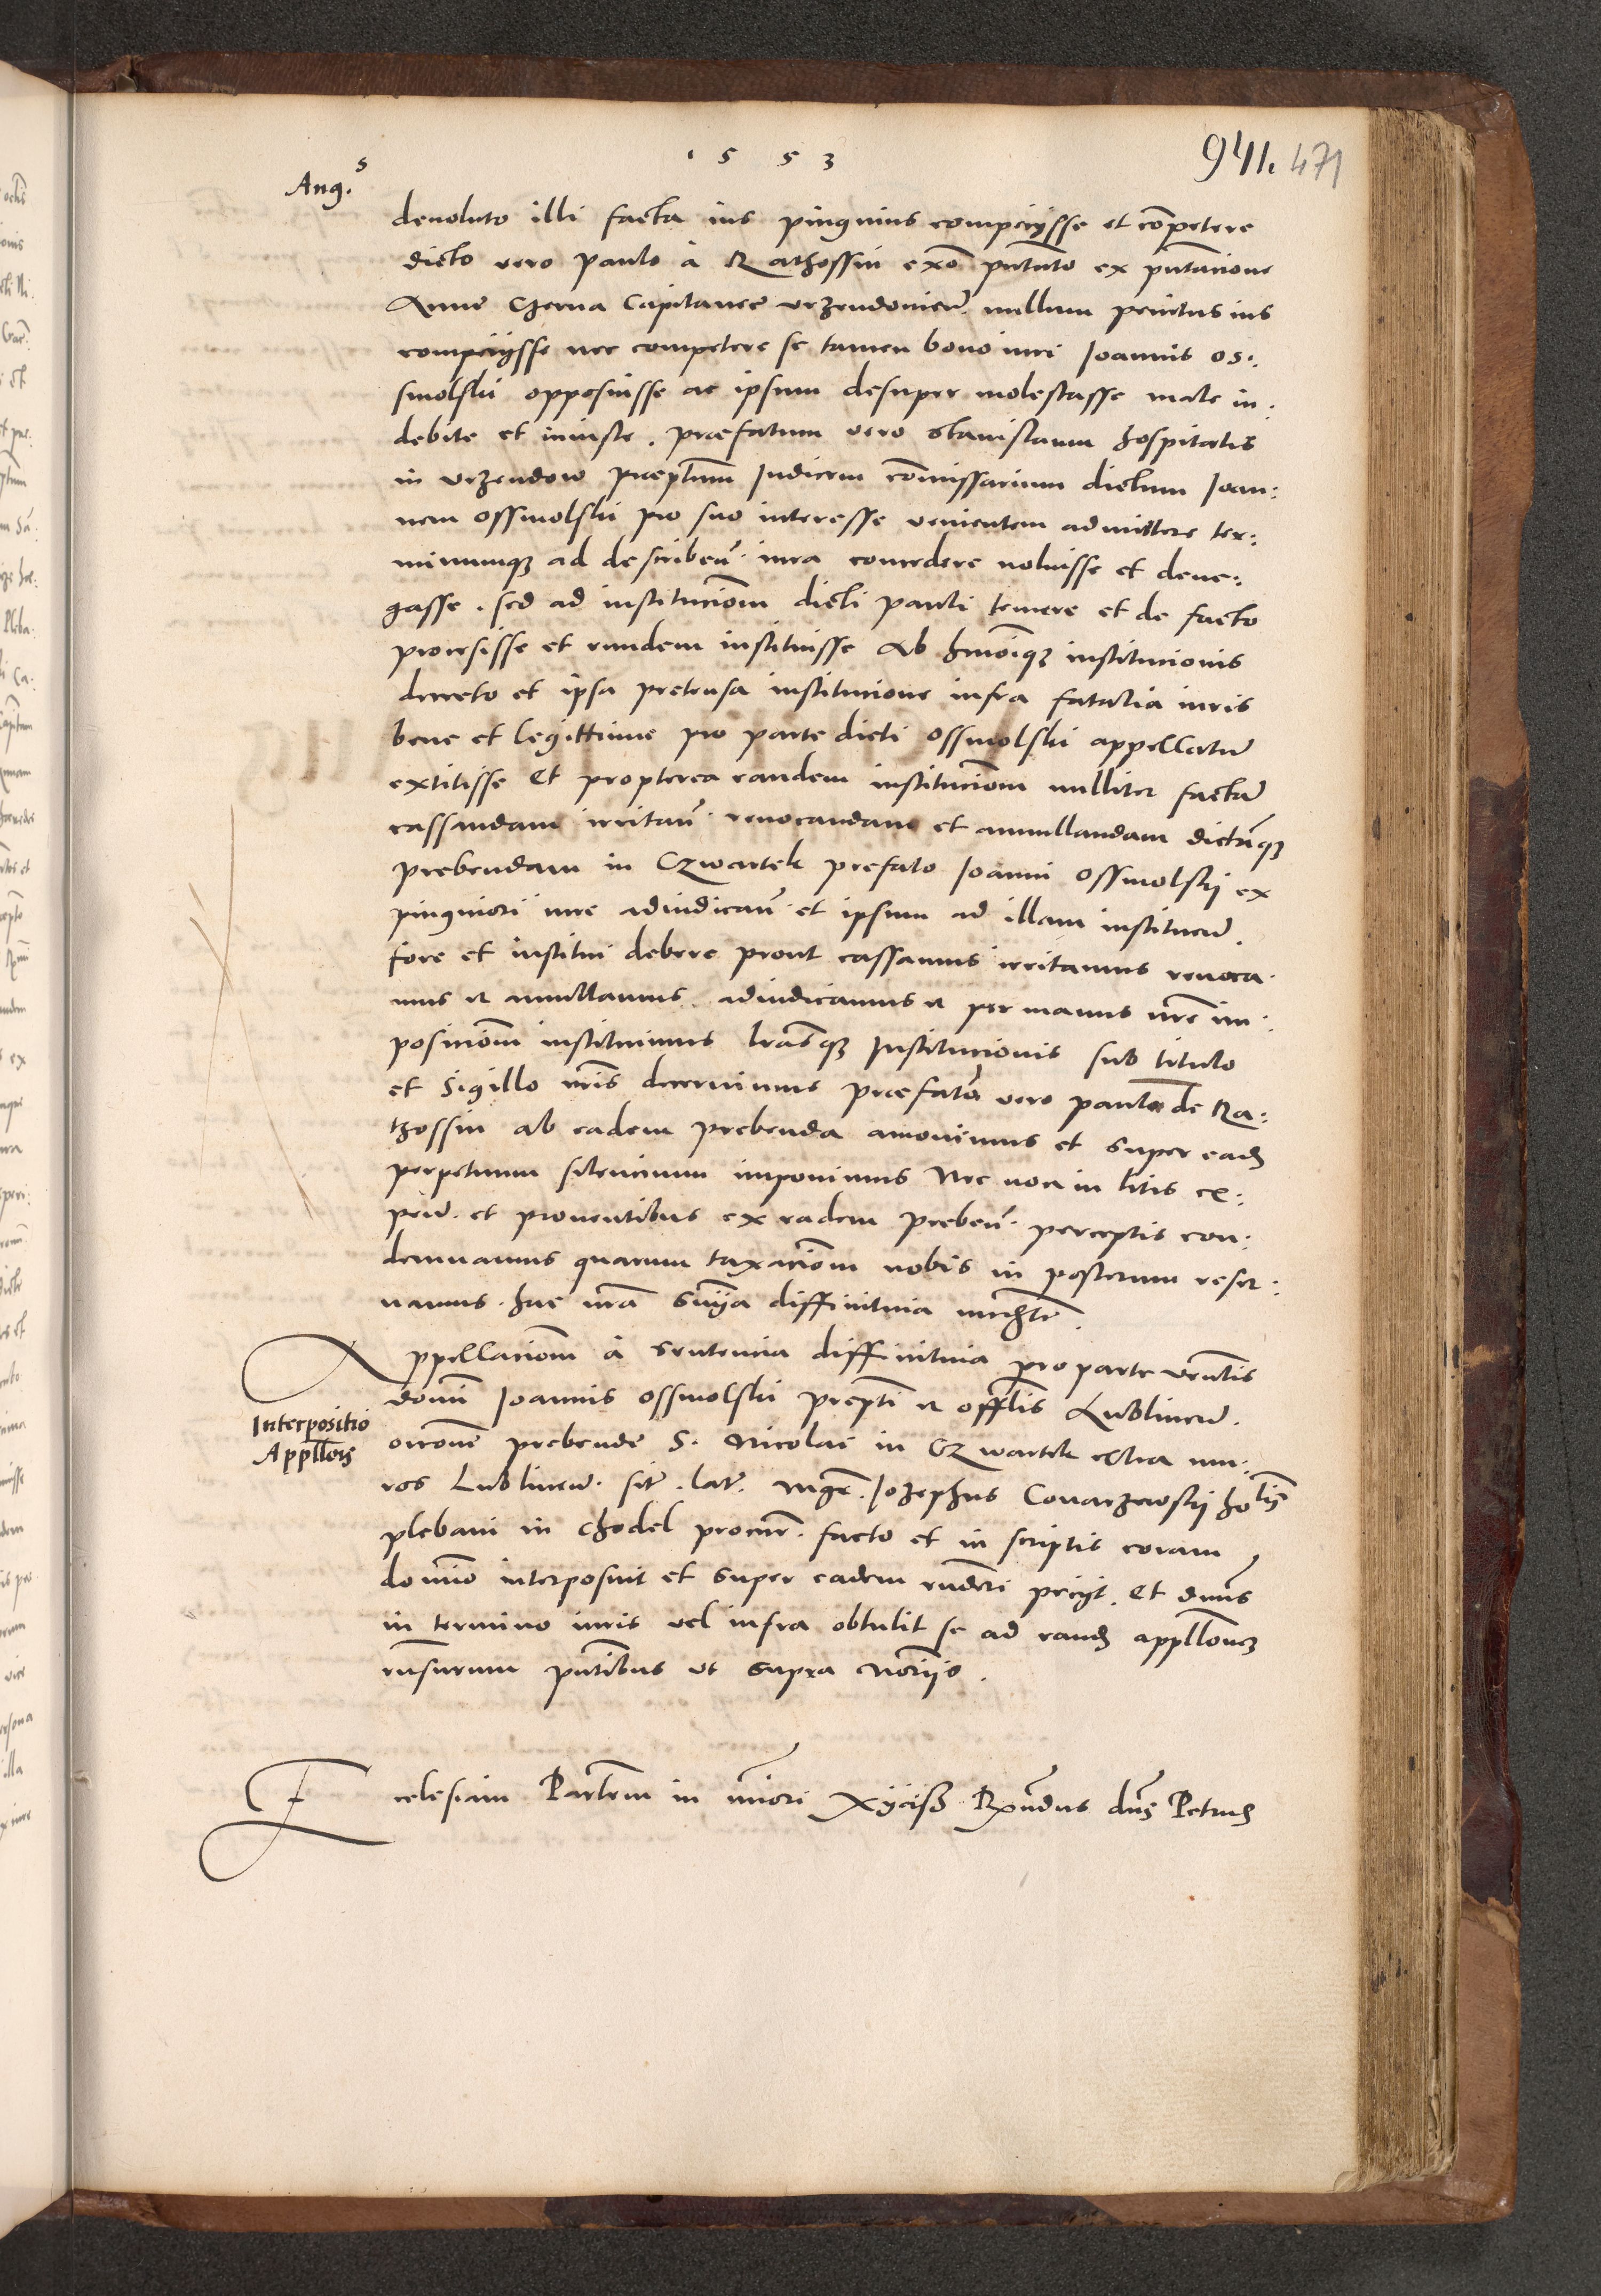 1553
941. 471
Aug.s
deuoluto illi facta ius pinguius competijsse et cõpetere
dicto vero Paulo à Rathossin exõ pñtato ex pñtacione
Anne Czerna Capitanee vrzendouien̄. nullum penitus ius
competijsse nec competere se tamen bono iuri Joannis Os:
smolski opposuisse ac ipsum desuper molestasse male in:
debite et iniuste. præfatum vero Stanislaum hospitalis
in Vrzendow præptum Judicem cõmissarium dictum Joan:
nem Ossmolski pro suo interesse venientem admittere ter:
minumq3 ad describen̄. iura concedere noluisse et dene:
gasse. sed ad institucionẽ dicti Pauli temere et de facto
procesisse et eundem instituisse Ab hmõiq3 institucionis
decreto et ipsa pretensa institucione infra fatalia iuris
bene et legittime pro parte dicti Ossmolski appellatũ
extitisse Et propterea eandem institucionẽ nulliter factã
cassandam irritan̄. reuocandam et annullandam dictãq3
prebendam in Czwartek prefato Joanni Ossmolskj ex
pinguiori iure adiudican̄. et ipsum ad illam instituend.
fore et institui debere prout cassamus irritamus reuoca:
mus et annullamus. adiudicamus et per manus nrẽ im:
posicionẽ instituimus lrãsq3 Institucionis sub titulo
et Sigillo nrĩs decernimus præfatũ vero Paulũ de Ra:
thossin ab eadem prebenda amouemus et super eadẽ
perpetuum silencium imponimus Nec non in litis ex:
pen̄. et prouentibus ex eadem preben̄. perceptis con:
demnamus quarum taxacionẽ nobis in posterum reser:
uamus. hac nrã sñĩa diffinitiua mediãte.
Appellacionẽ à sentencia diffinitiua pro parte ven̄lis
domĩ Joannis Ossmolski præpti et offĩlis Lublinen̄.
Interpositio
Appllõis
occõne prebende S. Nicolai in Czwartek extra mu:
ros Lublinen̄. sit. lat. Jozephus Conarzewskij
plebani in Chodel procur. facto et in scriptis coram
domino interposuit et super eadem reuderi pecijt. Et dnũs
in termino iuris vel infra obtulit se ad eandẽ appllõne3
rñsurum pñtibus vt supra Notarijs.
Ecclesiam Parlem in Petrus